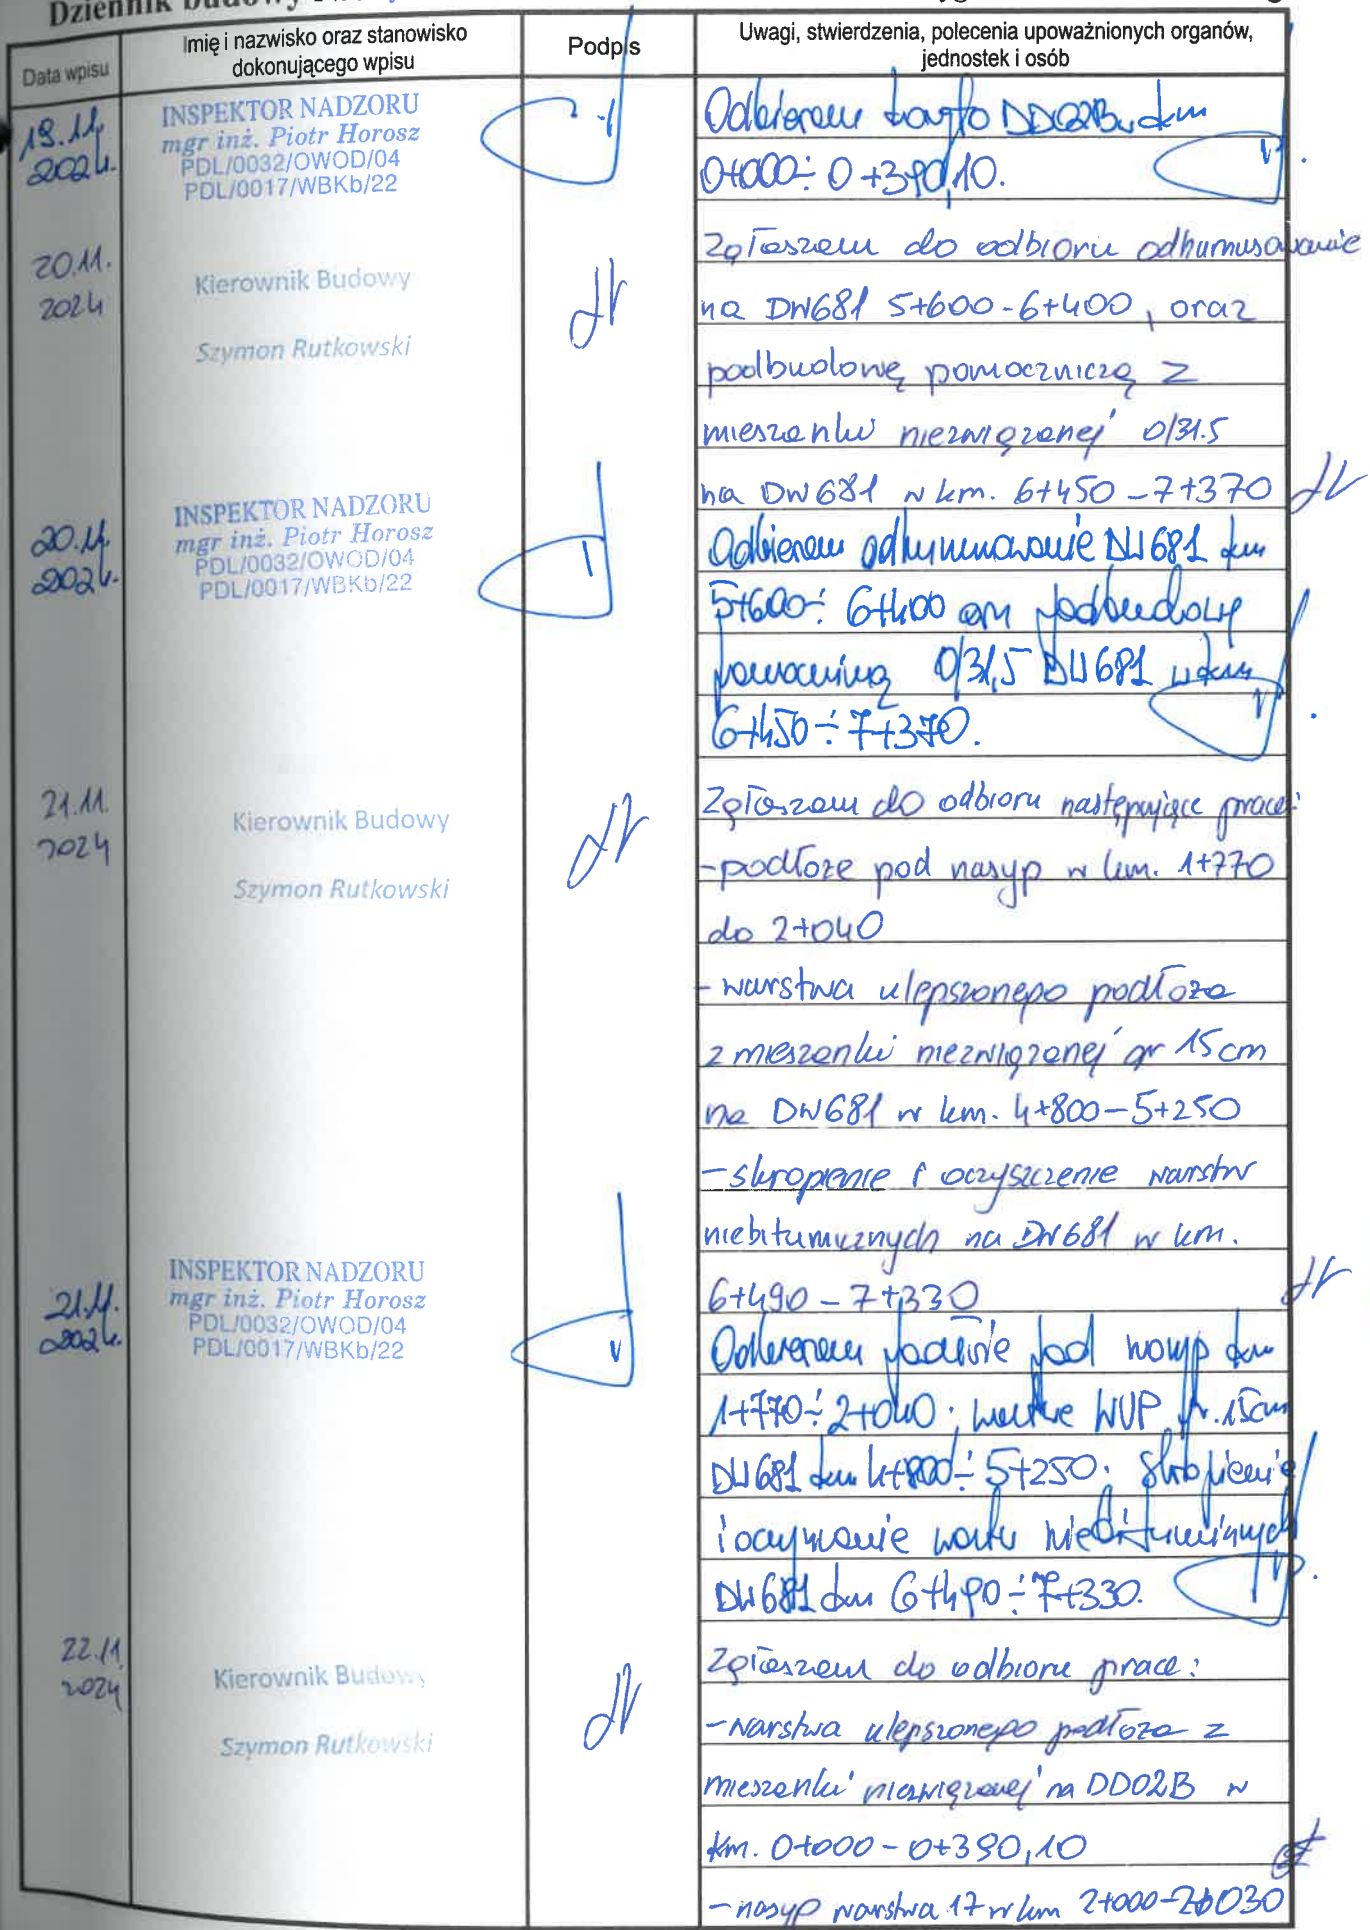 Dziennik budowy
Data wpisu
Imię i nazwisko oraz stanowisko
dokonującego wpisu
Podpis
Uwagi, stwierdzenia, polecenia upoważnionych organów,
jednostek i osób
19.11.
2024.
INSPEKTOR NADZORU
mgr inż. Piotr Horosz
PDL/0032/OWOD/04
PDL/0017/WBKb/22
Odbieram DD02B km
0+000÷0+390,10.
20.11.
2024
Kierownik Budowy
Szymon Rutkowski
Zgłaszam do odbioru odhumusowanie
na DW681 5+600-6+400, oraz
podbudowę pomocniczą z
mieszanki niezwiązanej 0/31.5
na DW681 w km. 6+450-7+370
20.11.
2024.
INSPEKTOR NADZORU
mgr inż. Piotr Horosz
PDL/0032/OWOD/04
PDL/0017/WBKb/22
Odbieram odhumusowanie DW681 km
5+600÷6+400 oraz podbudowę
pomocniczą 0/31,5 DW681 w km
6+450÷7+370.
21.11.
2024
Kierownik Budowy
Szymon Rutkowski
Zgłaszam do odbioru następujące prace:
-podłoże pod nasyp w km. 1+770
do 2+040
-warstwa ulepszonego podłoża
z mieszanki niezwiązanej gr 15cm
na DW681 w km. 4+800-5+250
-skropienie i oczyszczenie warstw
niebitumicznych na DW681 w km.
6+490-7+330
21.11.
2024.
INSPEKTOR NADZORU
mgr inż. Piotr Horosz
PDL/0032/OWOD/04
PDL/0017/WBKb/22
Odbieram podłoże pod nasyp km
1+770÷2+040; warstwę WUP gr.15cm
DW681 km 4+800÷5+250; skropienie
i oczyszczenie warstw niebitumicznych
DW681 km 6+490÷7+330.
22.11
2024
Kierownik Budowy
Szymon Rutkowski
Zgłaszam do odbioru prace:
-warstwa ulepszonego podłoża z
mieszanki niezwiązanej na DD02B w
km. 0+000-0+390,10
-nasyp warstwa 17 w km 2+000-2+030